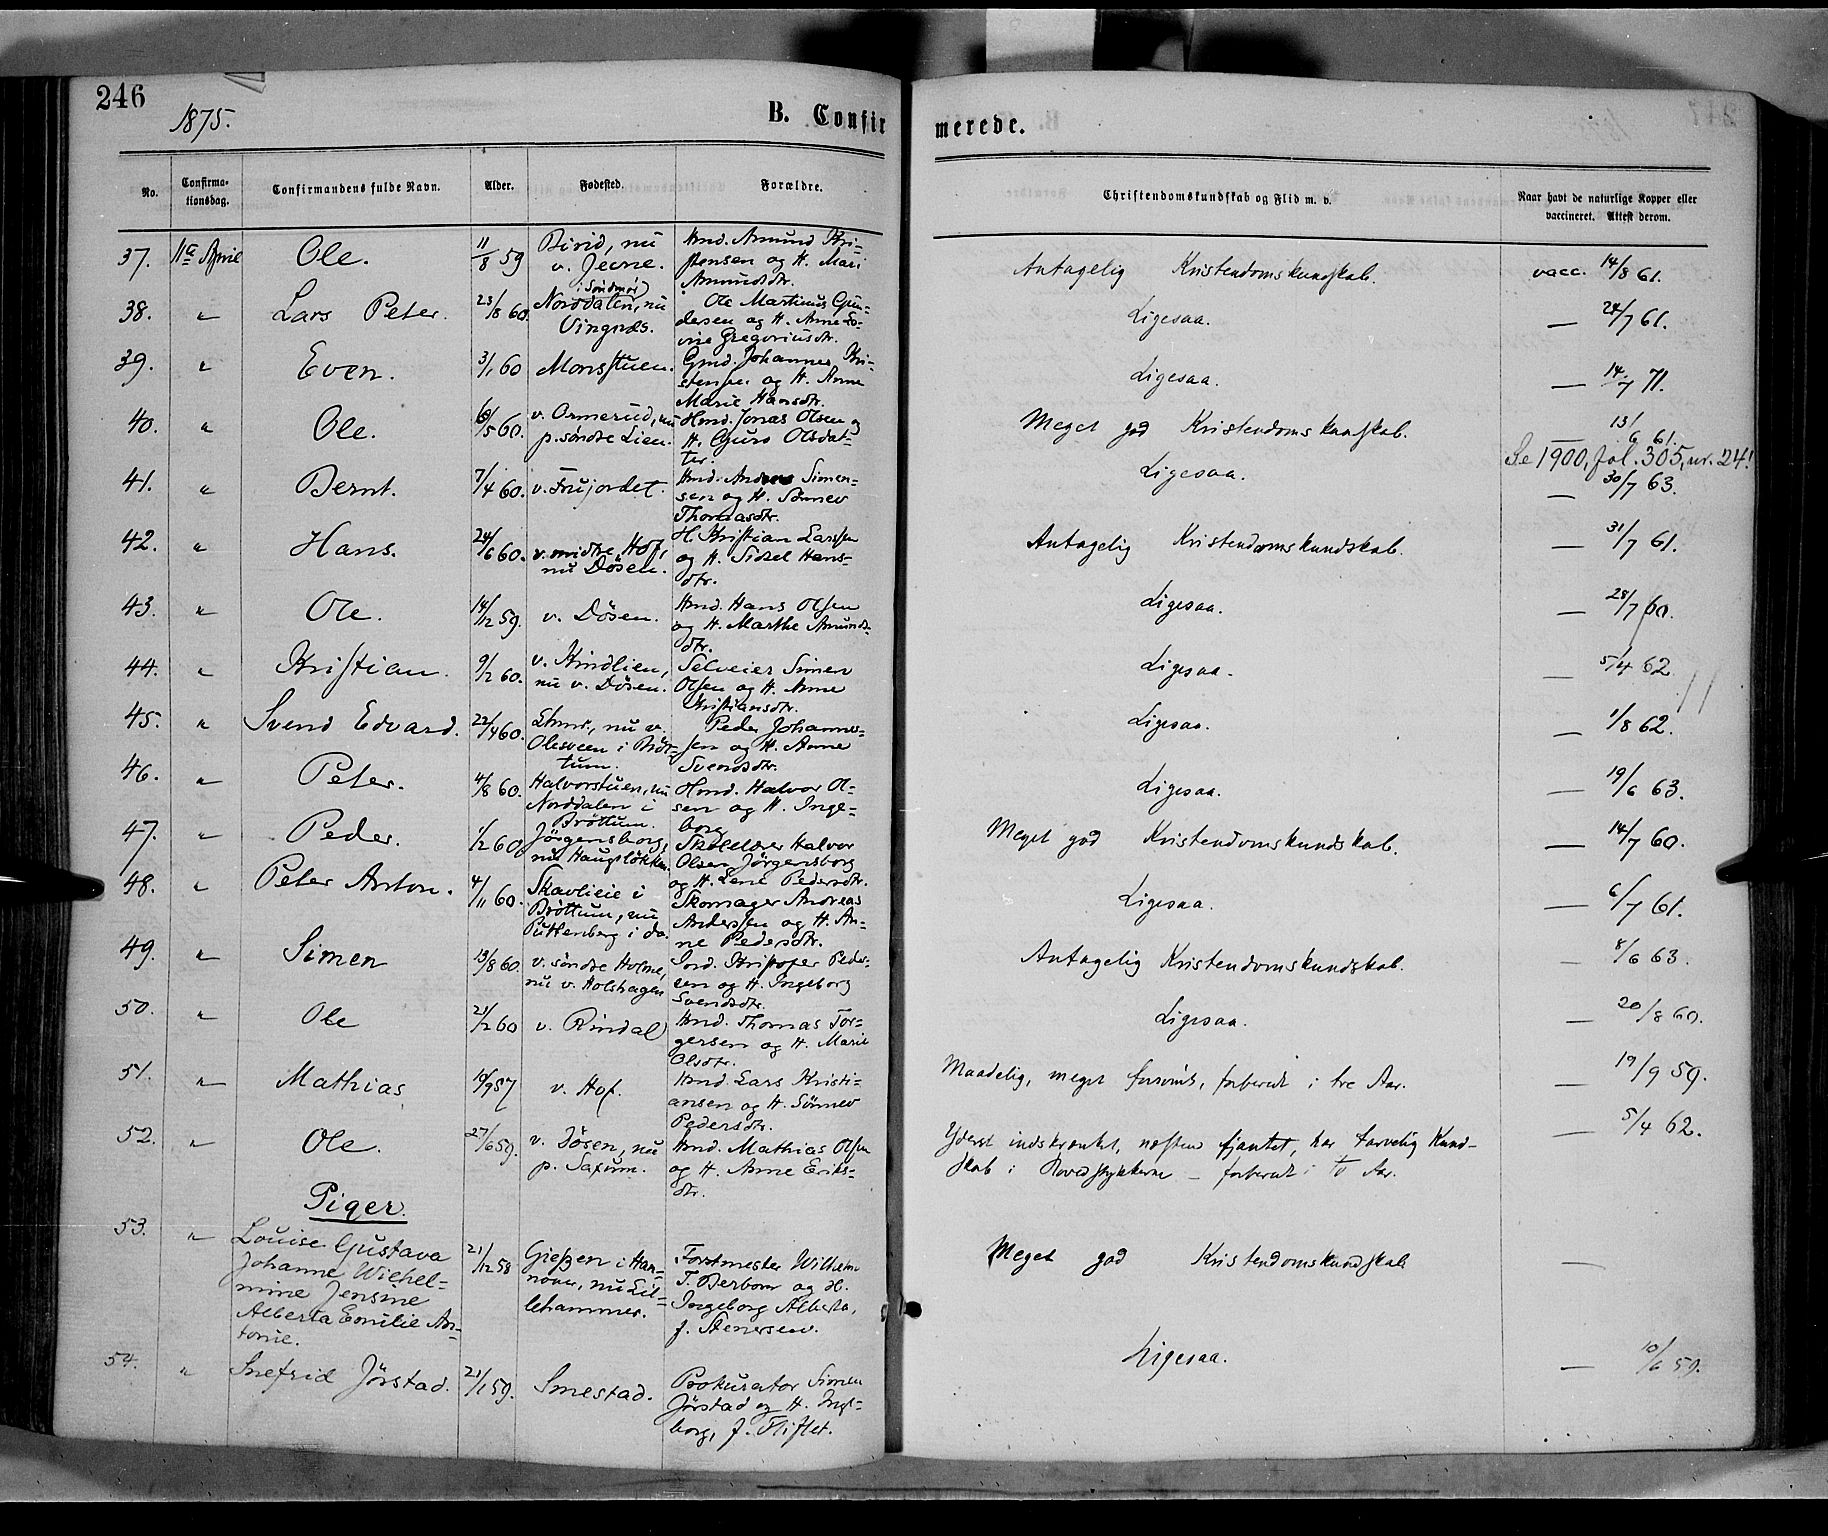 246
1875.
B. Confirmerede.
No. Confirmationsdag. Confirmandens fulde Navn. Alder. Fødested. Forældre. Christendomskundskab og Flid m. v. Naar havt de naturlige Kopper eller vaccineret. Attest derom.
37. 11te April Ole. 11/8 59 Birid, nu v. Jevne. Hmd. Amund Kristensen og H. Mari Amundsdtr. Antagelig Kristendomskundskab. vacc. 14/8 61.
38. " Lars Peter. 23/8 60. Norddalen, (i Søndmør) nu Vingnæs. Ole Martinus Gundersen og H. Anne Lovise Gregoriusdtr. Ligesaa. — 24/7 61.
39. " Even. 3/1 60 Monsstuen. Gmd. Johannes Kristensen og H. Anne Marie Hansdtr. Ligesaa. — 14/7 71.
40. " Ole. 6/5 60. v. Ormerud, nu p. søndre Lien. Hmd. Jonas Olsen og H. Guro Olsdatter. Meget god Kristendomskundskab. — 13/6 61.
Se 1900, fol. 305, nr. 24!
41. " Bernt. 7/4 60. v. Frujordet. Hmd. Anders Simensen og H. Sønnev Thomasdtr. Ligesaa. — 30/7 63.
42. " Hans. 24/6 60. v. midtre Hof, nu Døsen. H. Kristian Larssen og H. Sidsel Hansdtr. Antagelig Kristendomskundskab. — 31/7 61.
43. " Ole. 14/12 59. v. Døsen. Hmd. Hans Olsen og H. Marthe Amundsdtr. Ligesaa. — 28/7 60.
44. " Kristian. 9/2 60. v. Kindlien, nu v. Døsen. Selveier Simen Olsen og H. Anne Kristiansdtr. Ligesaa. — 5/4 62
45. " Svend Edvard. 22/4 60. nu v. Olesveen i Brøttum. Peder Johannessen og H. Anne Svendsdtr. Ligesaa. — 1/8 62.
46. " Peter. 4/8 60. Halvorstuen, nu Norddalen i Brøttum. Hmd. Halvor Olsen og H. Ingeborg Ligesaa. — 19/6 63.
47. " Peder. 1/2 60 Jørgensborg, nu Haugsløkken. Skolelærer Halvor Olsen Jørgensborg og H. Lene Pedersdtr. Meget god Kristendomskundskab. — 14/7 60.
48. " Peter Anton. 4/11 60. Skavlieie i Brøttum, nu Puttenberg i do. Skomager Andreas Anderssen og H. Anne Pedersdtr. Ligesaa. — 6/7 61.
49. " Simen 13/8 60. v. søndre Holme, nu v. Holshagen Ind. Kristofer Pedersen og H. Ingeborg Svendsdtr. Antagelig Kristendomskundskab. — 8/6 63.
50. " Ole 21/2 60 v. Rindal Hmd. Thomas Torgersen og H. Marie Olsdtr. Ligesaa. — 20/8 60.
51. " Mathias 10/9 57 v. Hof. Hmd. Lars Kristiansen og H. Sønnev Pedersdtr. Maadelig, meget forsømt, forberedt i tre Aar. — 19/9 59.
52. " Ole. 27/6 59. v. Døsen, nu p. Saxum. Hmd. Mathias Olsen og H. Anne Eriksdtr. Yderst indskrænket, næsten fjantet, har tarvelig Kundskab i Hovedstykkerne – forberedt i to Aar. — 5/4 62.
Piger.
53. " Louise Gustava Johanne Wilhelmine Jensine Alberta Emilie Antonie. 21/12 58 Gießen i Hannover, nu Lillehammer. Forstmester Wilhelm T. Berbom og H. Ingeborg Alberta, f. Stenersen. Meget god Kristendomskundskab —
54. " Snefrid Jørstad. 21/1 59. Smestad. Prokurator Simen Jørstad og H. Ingeborg, f. Fliflet. Ligesaa. — 10/6 59.